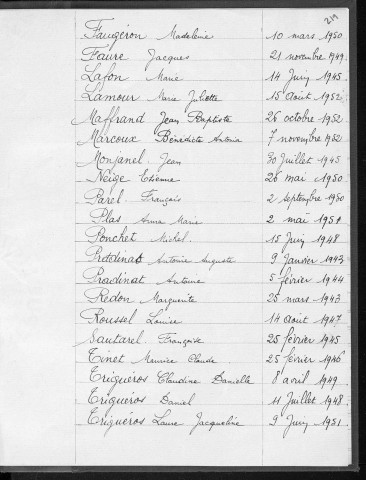 219
Faugéron Madeleine 10 mars 1950
Faure Jacques 21 novembre 1949
Lafon Marie 14 Juin 1945
Lamour Marie Juliette 15 Août 1952
Maffrand Jean Baptiste 26 octobre 1952
Marcoux Bénédicte Antonia 7 novembre 1952
Monjanel Jean 30 Juillet 1945
Neige Etienne 26 mai 1950
Parel François 2 septembre 1950
Plas Anna Marie 2 mai 1951
Ponchet Michel 15 Juin 1948
Pradinat Antoine Auguste 9 Janvier 1943
Pradinat Antoine 5 février 1944
Redon Marguerite 25 mars 1943
Roussel Louise 14 août 1947
Sautarel Françoise 25 février 1945
Tinet Maurice Claude 25 février 1946
Triguéros Claudine Danielle 8 avril 1949
Triguéros Daniel 11 Juillet 1948
Triguéros Laure Jacqueline 9 Juin 1951